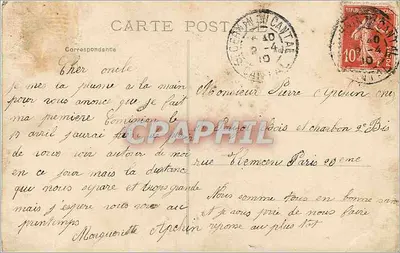 CARTE POSTALE
Correspondance
Cher oncle
je mets la plume a la main
pour vous anonce que Je fait
ma premiere Communion le
15 avril j'aurai
de vous voir autour de moi
en ce jour mais la distance
que nous separe et trop grande
mais j'espere vous voir au
printemps
Marguerite Apchin
Monsieur Pierre Apchin
bois et charbon 2 Bis
rue Tlemcen Paris 20 eme
Nous somme tous en bonne santé
et je vous prie de nous faire
reponse au plus tôt
CPAPHIL
10